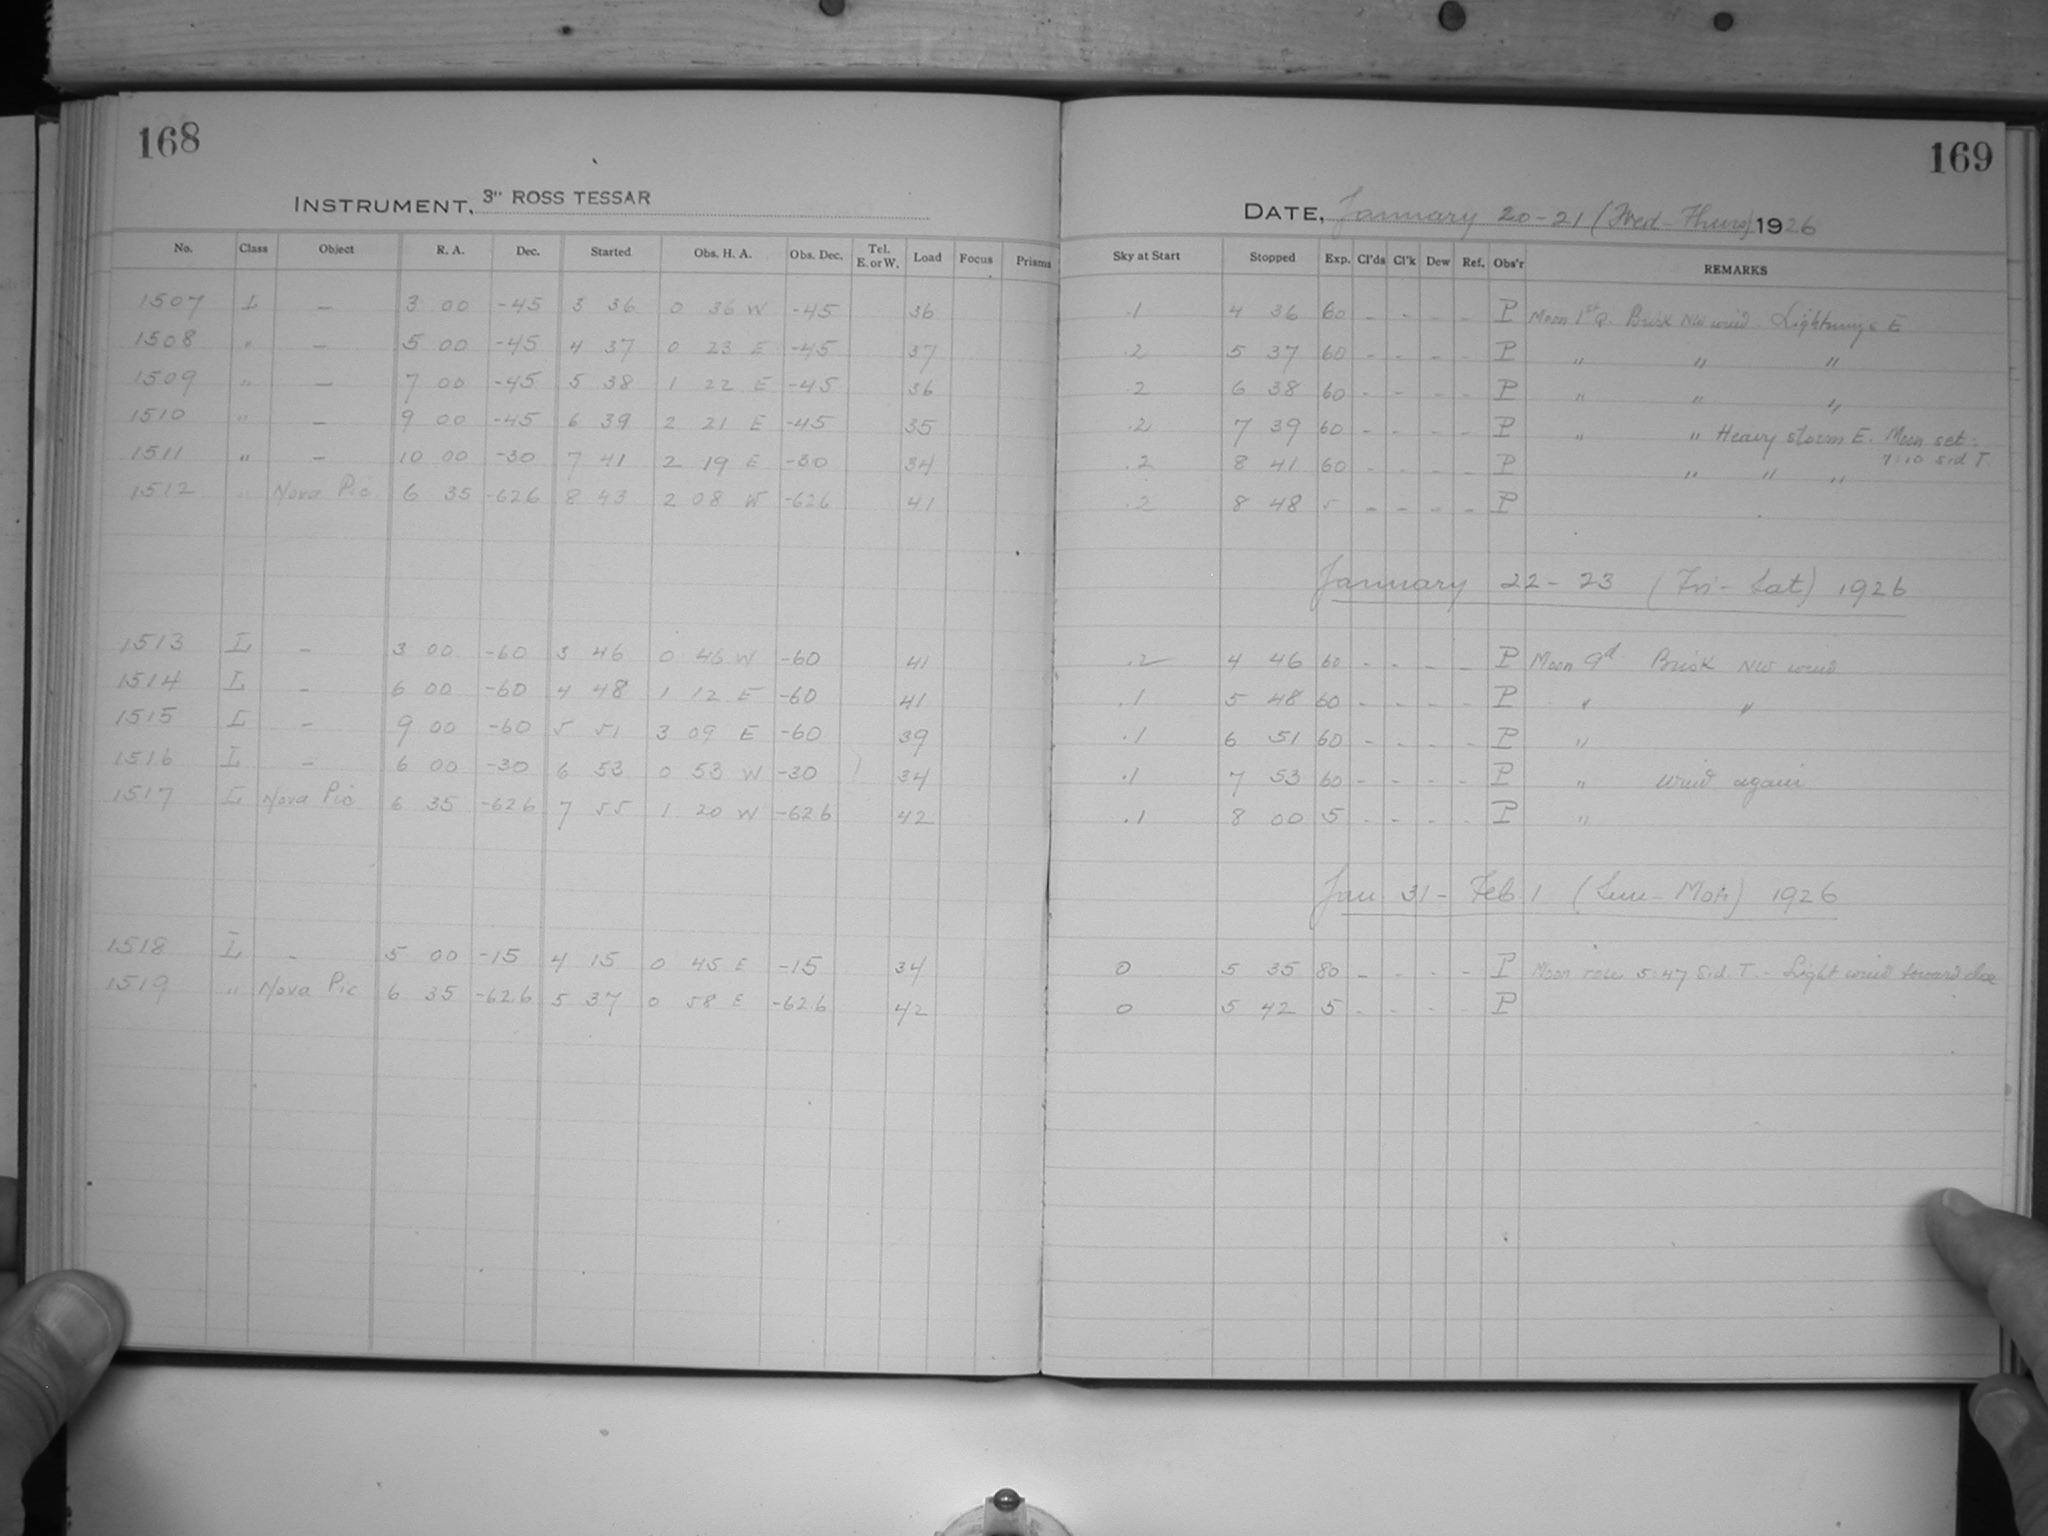 168
INSTRUMENT, 3" ROSS TESSAR
No. Class Object R. A. Dec. Started Obs. H. A. Obs. Dec. Tel. E. or W. Load Focus Prisms
1507 L – 3 00 -45 3 36 0 36 W -45 36
1508 " – 5 00 -45 4 37 0 23 E -45 37
1509 " – 7 00 -45 5 38 1 22 E -45 36
1510 " – 9 00 -45 6 39 2 21 E -45 35
1511 " – 10 00 -30 7 41 2 19 E -30 34
1512 " Nova Pic 6 35 -626 8 43 2 08 W -626 41
1513 L – 3 00 -60 3 46 0 46 W -60 41
1514 L – 6 00 -60 4 48 1 12 E -60 41
1515 L – 9 00 -60 5 51 3 09 E -60 39
1516 L – 6 00 -30 6 53 0 53 W -30 34
1517 L Nova Pic 6 35 -626 7 55 1 20 W -626 42
1518 L – 5 00 -15 4 15 0 45 E -15 34
1519 " Nova Pic 6 35 -62.6 5 37 0 58 E -62.6 42
169
DATE, January 20-21 (Wed-Thurs) 1926
Sky at Start Stopped Exp. Cl'ds Cl'k Dew Ref. Obs'r REMARKS
.1 4 36 60 - - - - P Moon 1st Q. Brisk NW wind. Lightning E
.2 5 37 60 - - - - P " " "
.2 6 38 60 - - - - P " " "
.2 7 39 60 - - - - P " " Heavy storm E. Moon set
7:10 Sid T.
.2 8 41 60 - - - - P " " "
.2 8 48 5 - - - - P
January 22-23 (Fri-Sat) 1926
.2 4 46 60 - - - - P Moon 9d. Brisk NW wind
.1 5 48 60 - - - - P " "
.1 6 51 60 - - - - P "
.1 7 53 60 - - - - P " wind again
.1 8 00 5 - - - - P "
Jan. 31 - Feb 1 (Sun-Mon) 1926
0 5 35 80 - - - - P Moon rose 5:47 Sid. T. - Light wind toward
0 5 42 5 - - - - P